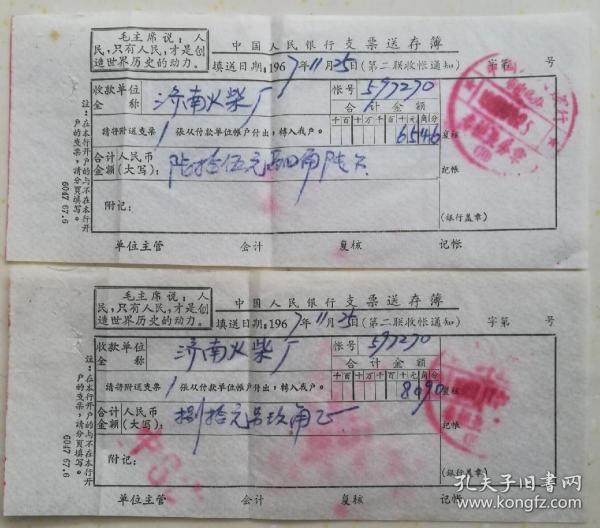 毛主席说：人
民，只有人民，才是创
造世界历史的动力。
中国人民银行支票送存簿
填送日期：1967年11月25日（第二联收帐通知） 字第 号
收款单位
全 称
济南火柴厂
帐号 597270
合计金额
千百十万千百十元角分
请将附送支票1张从付款单位帐户付出，转入我户。
6546
复核
合计人民币
金额（大写）：
陆拾伍元肆角陆分
记帐
附记：
（银行盖章）
单位主管 会计 复核 记帐
注：在本行开户的与不在本行开
户的支票，请分页填写。
6047 67.6
毛主席说：人
民，只有人民，才是创
造世界历史的动力。
中国人民银行支票送存簿
填送日期：1967年11月25日（第二联收帐通知） 字第 号
收款单位
全 称
济南火柴厂
帐号 597270
合计金额
千百十万千百十元角分
请将附送支票1张从付款单位帐户付出，转入我户。
8090
复核
合计人民币
金额（大写）：
捌拾元另玖角正
记帐
附记：
（银行盖章）
单位主管 会计 复核 记帐
注：在本行开户的与不在本行开
户的支票，请分页填写。
6047 67.6
孔夫子旧书网
kongfz.com